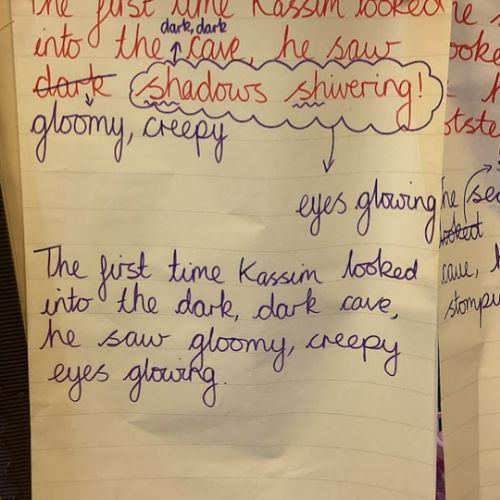 The first time Kassim looked
dark, dark
into the cave, he saw
dark shadows shivering!
gloomy, creepy
eyes glowing
The first time Kassim looked
into the dark, dark cave,
he saw gloomy, creepy
eyes glowing.
he
looked
cave, h